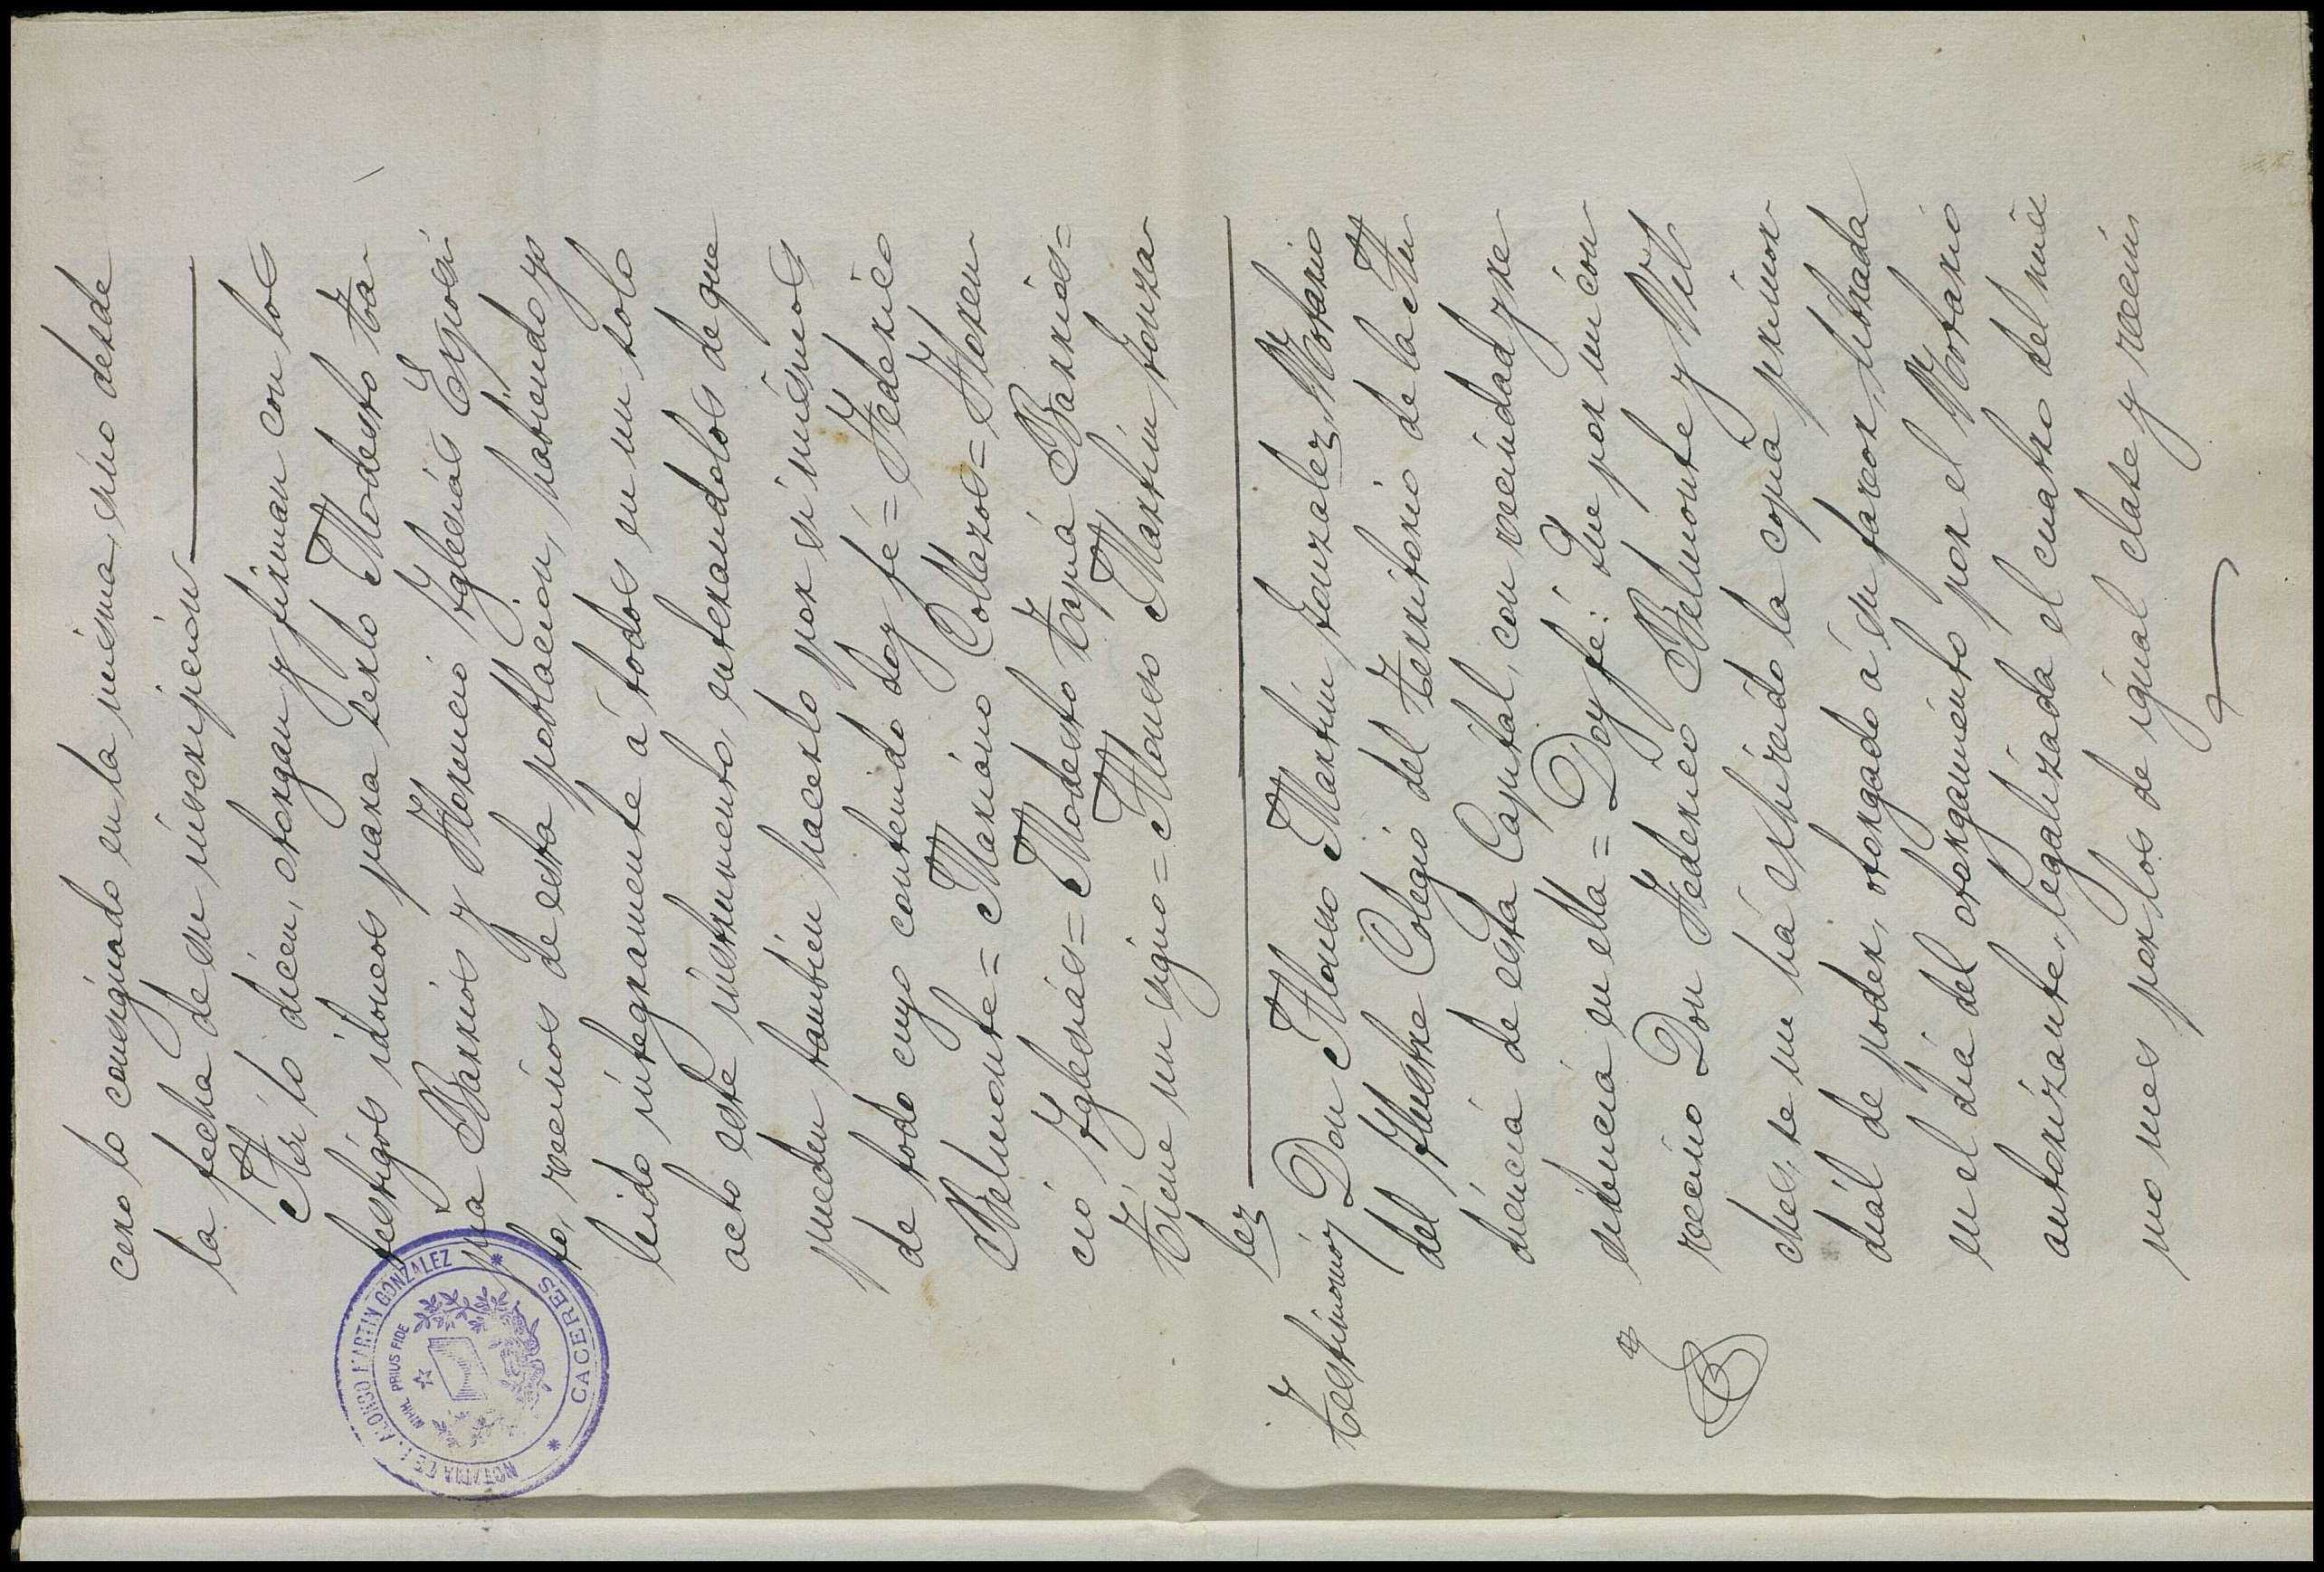 cero lo consignado en la misma, sino desde
la fecha de su inscripción
Así lo dicen, otorgan y firman con los
testigos idoneos para serlo Modesto Ta-
pia Barrios y Florencio Iglesias Exposi
to, vecinos de esta poblacion, habiendo yo
leido integramente á todos en un solo
acto este instrumento, enterandolos de que
pueden tambien hacerlo por si mismos
de todo cuyo contenido doy fé = Federico
Belmonte = Mariano Collazos = Floren
cio Iglesias = Modesto Tapia Barrios =
Tiene un signo = Alonso Martin Gonza
lez
Testimonio,
Don Alonso Martin Gonzalez, Notario
del Ilustre Colegio del Territorio de la Au
diencia de esta Capital, con vecindad y re
sidencia en ella = Doy fé: Que por mi con
vecino Don Federico Belmonte y Vil
ches, se me ha exhibido la copia primor
dial de poder, otorgado á su favor, librada
en el dia del otorgamiento por el Notario
autorizante, legalizada el cuatro del mis
mo mes por los de igual clase y vecin
NOTARIA DE D. ALONSO MARTIN GONZALEZ
NIHIL PRIUS FIDE
* CACERES *